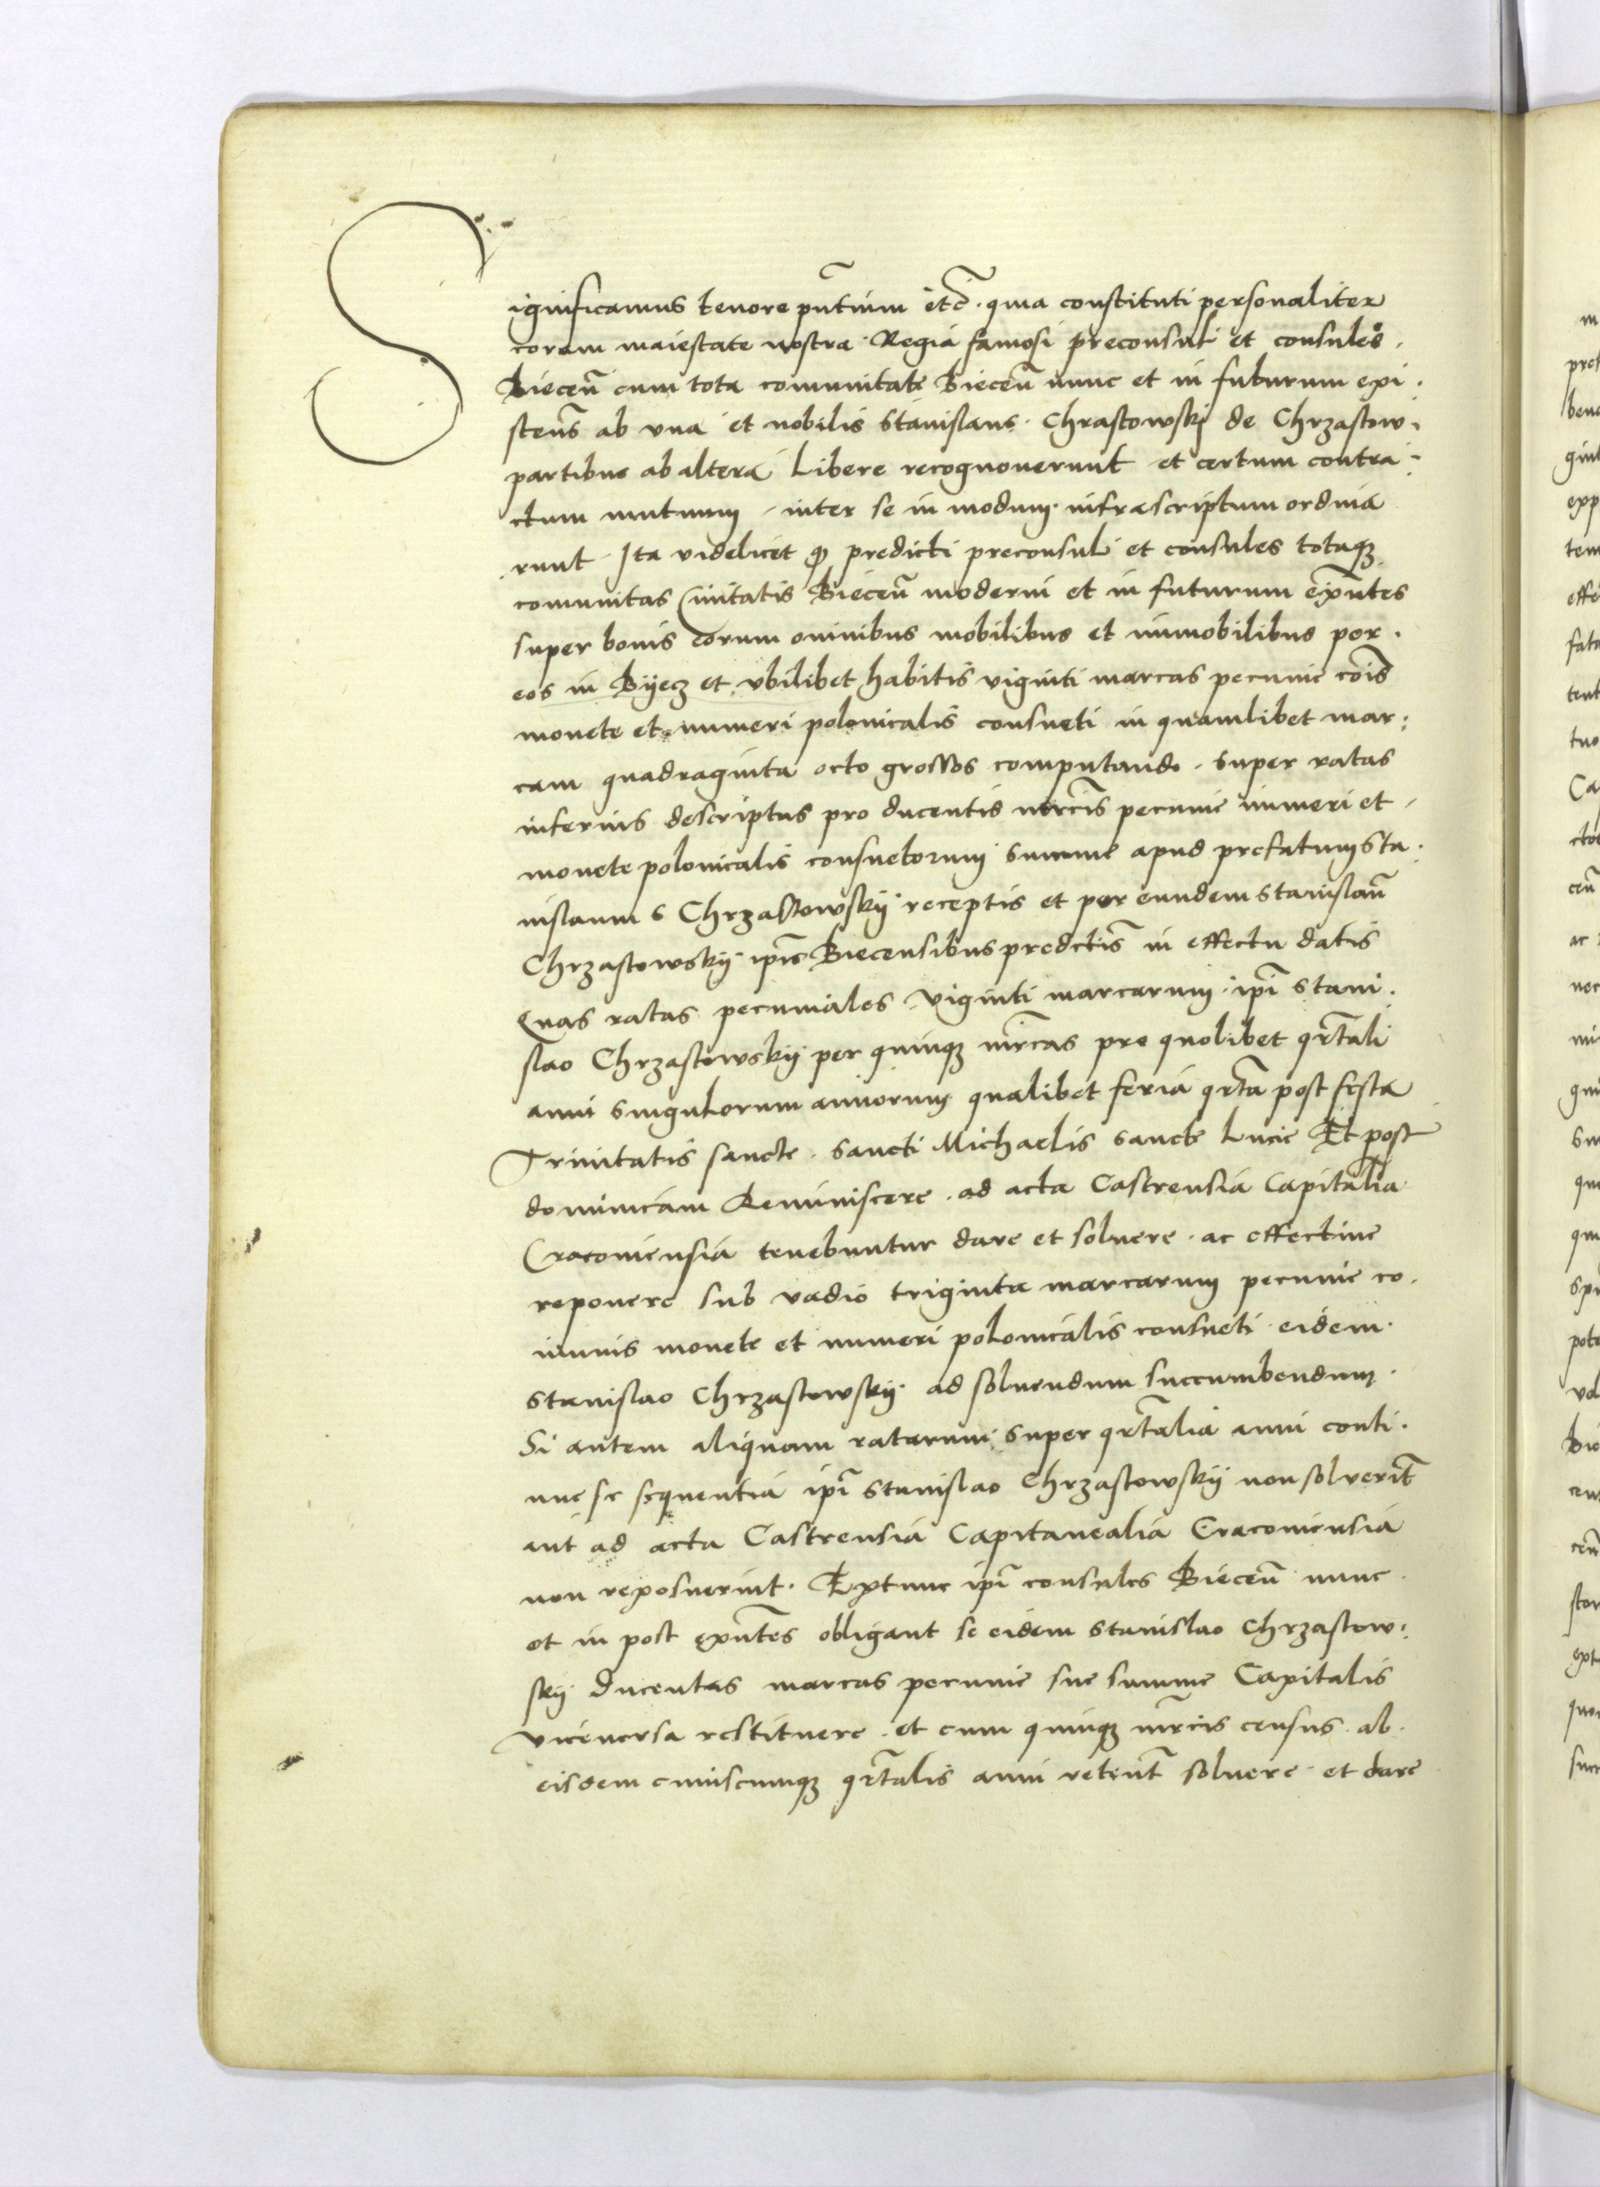 Significamus tenore pntium etc. quia constituti personaliter
coram maiestate nostra Regia famosi preconsul et consules.
Biecen cum tota comunitate Biecen nunc et in futurum exi.
stens ab vna et nobilis Stanislaus. Chrastowskij de Chrzastow.
partibus ab altera Libere recognouerunt et certum contra.
ctum mutuum. inter se in modum infrascriptum ordina
runt Ita videlicet predicti preconsul et consules totaqz
comunitas Ciuitatis Biecen moderni et in futurum exntes
super bonis eorum omnibus mobilibus et immobilibus per.
eos in Byecz et vbilibet habitis viginti marcas pecunie cois
monete et numeri polonicalis consueti in quamlibet mar.
cam quadraginta octo grossos computando. super ratas
inferius descriptas pro ducentis mrcis pecunie numeri et.
monete polonicalis consuetorum summe apud prefatum Sta.
nislaum Chrzastowskÿ receptis et per eundem Stanislau
Chrzastowskÿ ipis Biecensibus predctis in effectu datis
Quas ratas pecuniales viginti marcarum ipi Stani.
slao Chrzastowskÿ per quinqz mrcas pro quolibet qrtali
anni singulorum annorum qualibet feria qrta post festa
Trinitatis sancte. Sancti Michaelis sancte Lucie Et post
dominicam Reminiscere. ad acta Castrensia Capitalia
Cracouiensia tenebuntur dare et soluere. ac effectiue
reponere sub vadio triginta marcarum pecunie co.
munis monete et numeri polonicalis consueti eidem.
Stanislao Chrzastowskÿ. ad soluendum succumbendum.
Si autem aliquam ratarum super qrtalia anni conti.
nue se sequentia ipi Stanislao Chrzastowskÿ non soluerit
aut ad acta Castrensia Capitanealia Cracouiensia
non reposuerint. Extunc ipi consules Biecen nunc
et in post exntes obligant se eidem Stanislao Chrzastow.
skÿ Ducentas marcas pecunie sue summe Capitalis
viceuersa restituere. et cum quinqz mrcis census ab.
eisdem cuiuscumqz qrtalis anni retent soluere et dare